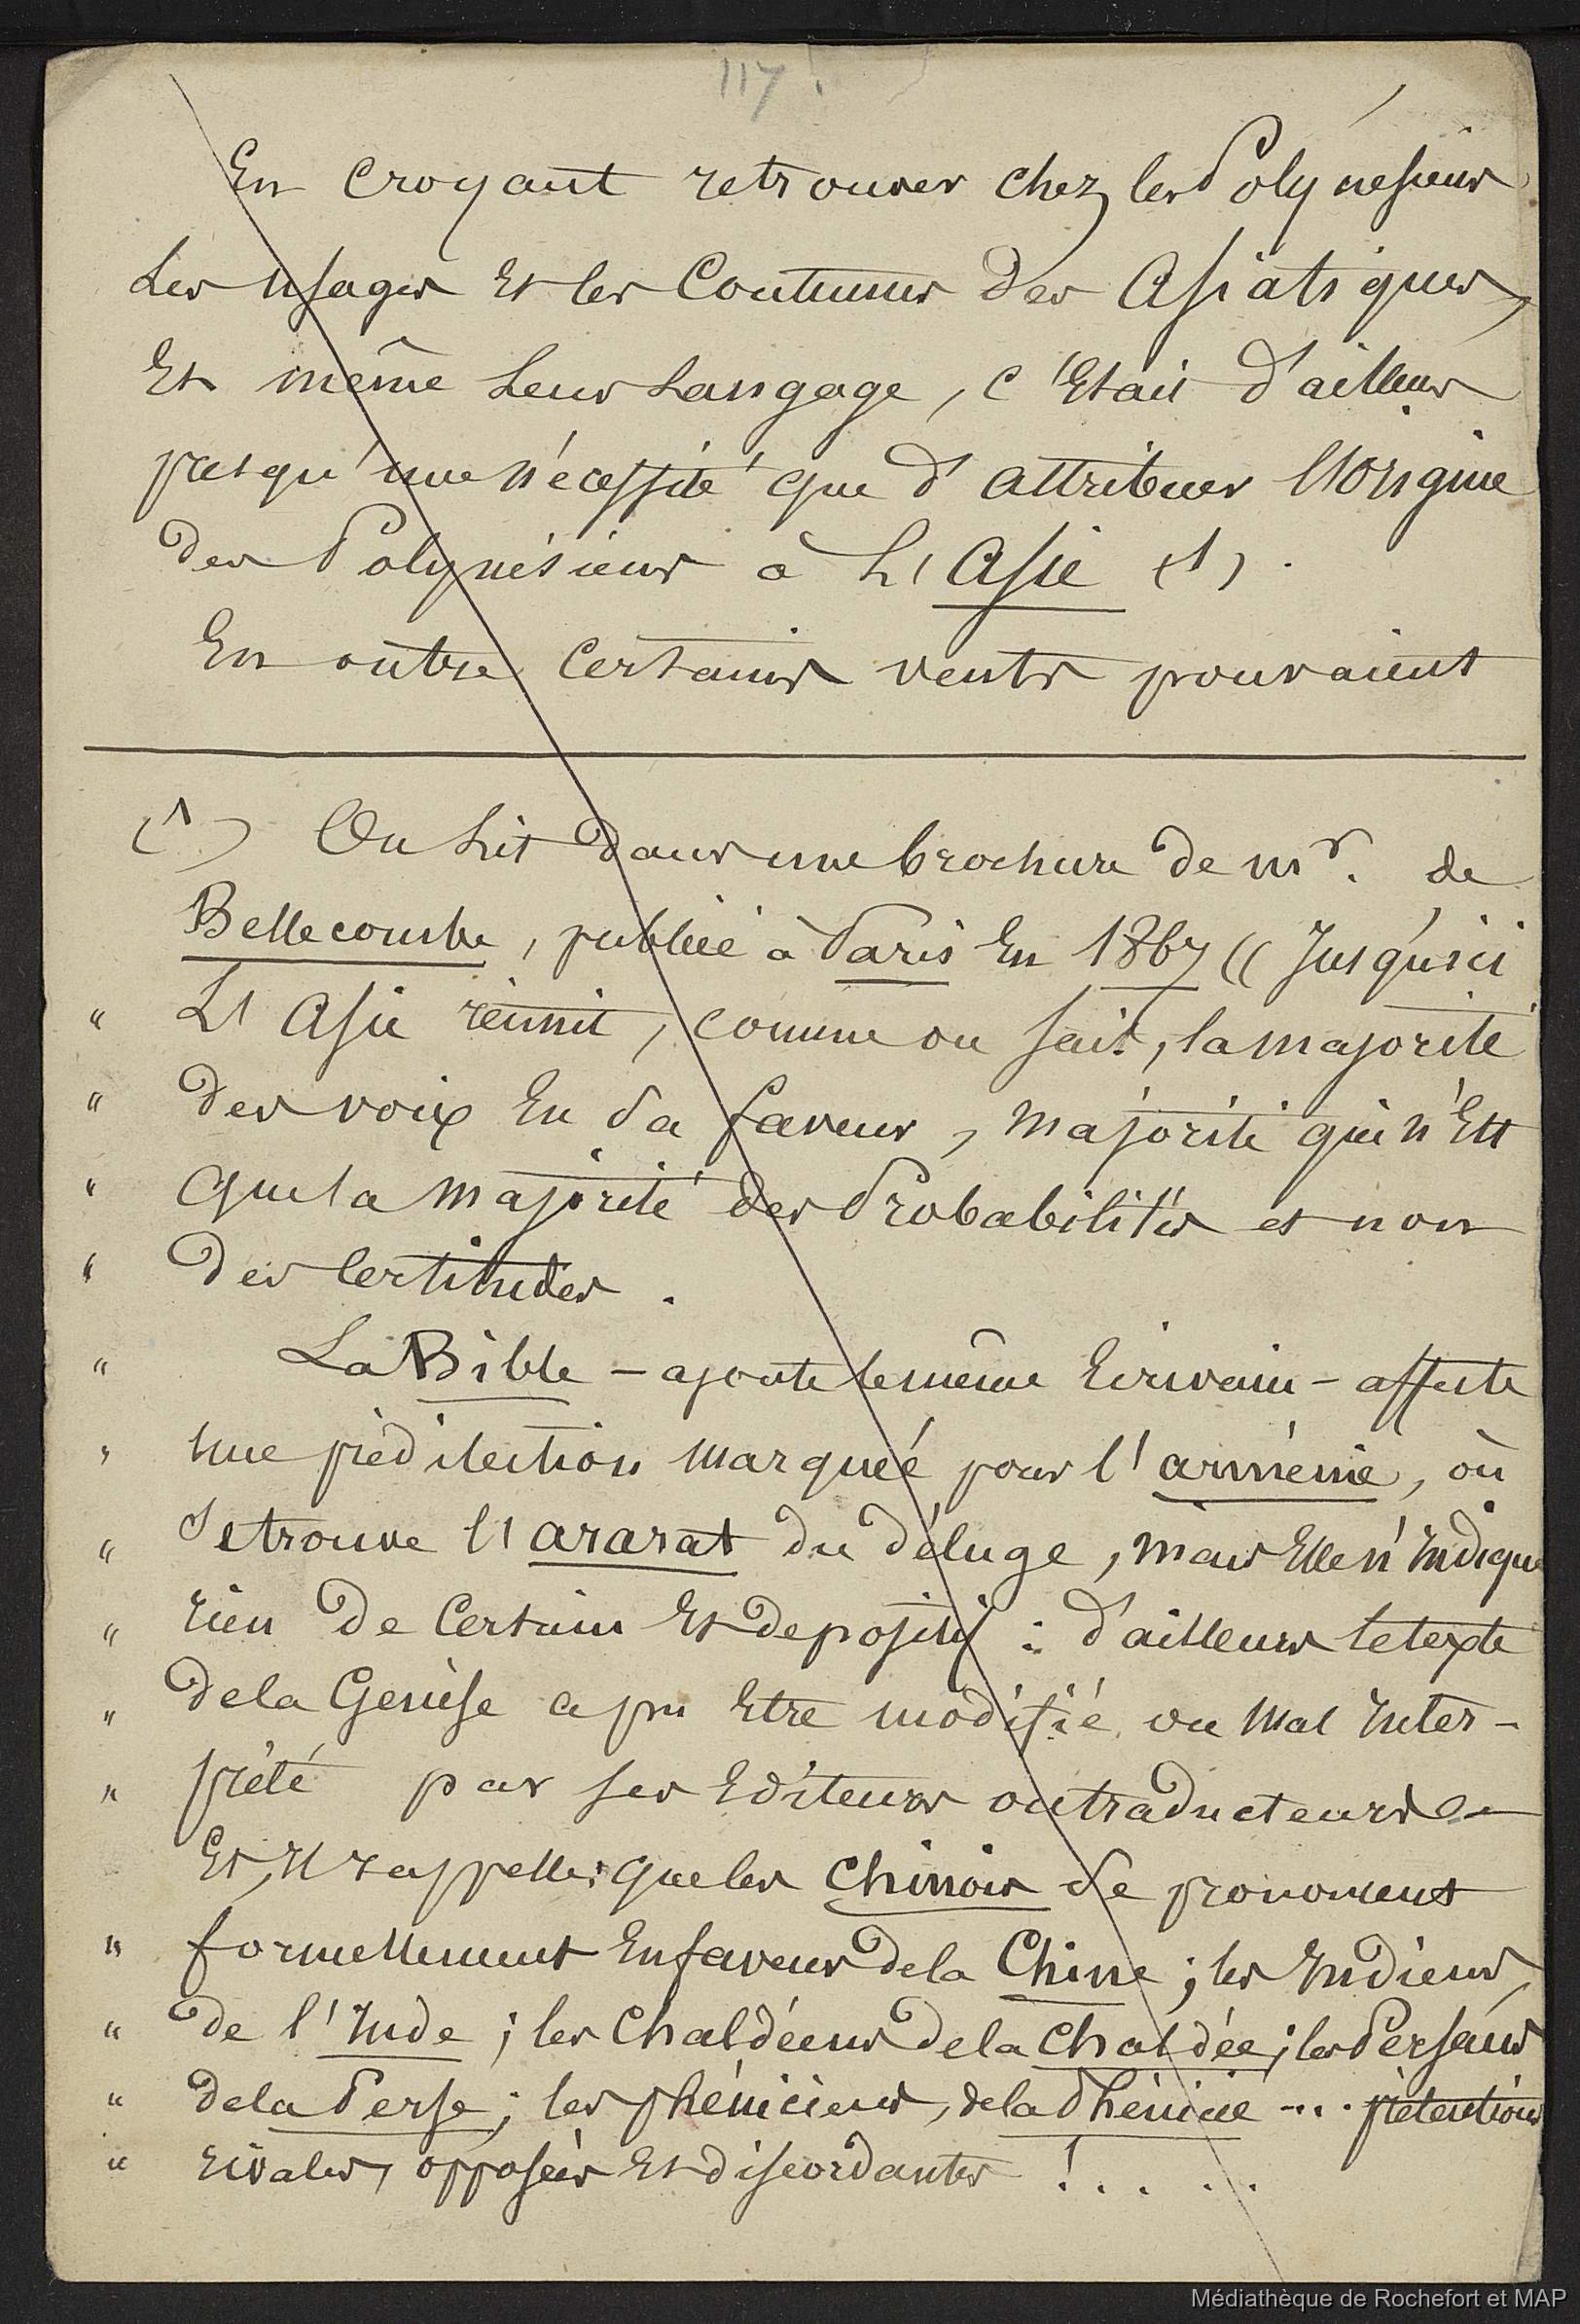 117.
En croyant retrouver chez les Polynésiens
Les usages Et les Coutumes des Asiatiques,
Et même Leur Langage, c'Etait d'ailleurs
presqu'une nécessité que d'attribuer l'Origine
des Polynésiens à L'Asie (1).
En outre Certains vents pouvaient
(1) On Lit dans une brochure de Mr. de
Bellecombe, publiée à Paris En 1867 (( Jusqu'ici
" L'Asie réunit, comme on sait, la majorité
" des voix En Sa faveur, majorité qui n'Est
" que la majorité des Probabilités et non
" des Certitudes.
" La Bible – ajoute le même Ecrivain – affecte
" Une prédilection marquée pour l'arménie, où
" Se trouve l'ararat du déluge, mais Elle n'Indique
" rien de Certain Et de positif : d'ailleurs le texte
" de la Genèse a pu Etre modifié ou Mal Inter-
" prété par ses Editeurs ou traducteurs —
Et, Il rappelle que les Chinois Se prononcent
" formellement En faveur de la Chine ; les Indiens,
" de l'Inde ; les Chaldéens de la Chaldée ; les Persans
" de la Perse ; les phéniciens, de la Phénicie .... prétentions
" rivales, opposées Et discordantes ! . . . .
Médiathèque de Rochefort et MAP